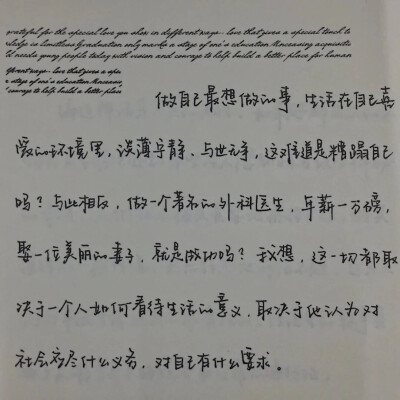 grateful for the special love you show in different ways - love that gives a special touch to
ledge is limitless Graduation only marks a stage of one's education Unceasing acquisitio
ld needs young people today with vision and courage to help build a better place for human
fferent ways - love that gives a spec
s a stage of one's education Unceasin
courage to help build a better place
做自己最想做的事，生活在自己喜
爱的环境里，淡薄宁静、与世无争，这难道是糟蹋自己
吗？与此相反，做一个著名的外科医生，年薪一万磅，
娶一位美丽的妻子，就是成功吗？我想，这一切都取
决于一个人如何看待生活的意义，取决于他认为对
社会应尽什么义务，对自己有什么要求。